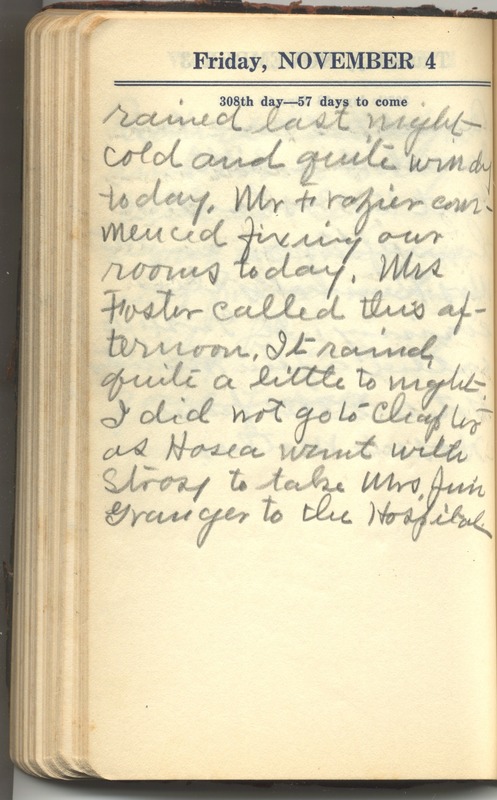 Friday, NOVEMBER 4
308th day—57 days to come
rained last night
cold and quite windy
today. Mr Frazier com-
menced fixing our
rooms today. Mrs
Foster called this af-
ternoon. It rained
quite a little to night.
I did not go to Chapter
as Hosea went with
to take Mrs. Jim
Granger to the Hospital